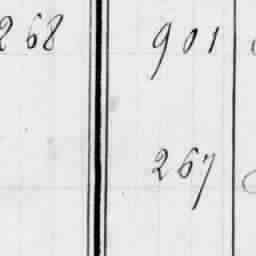 268 901
267